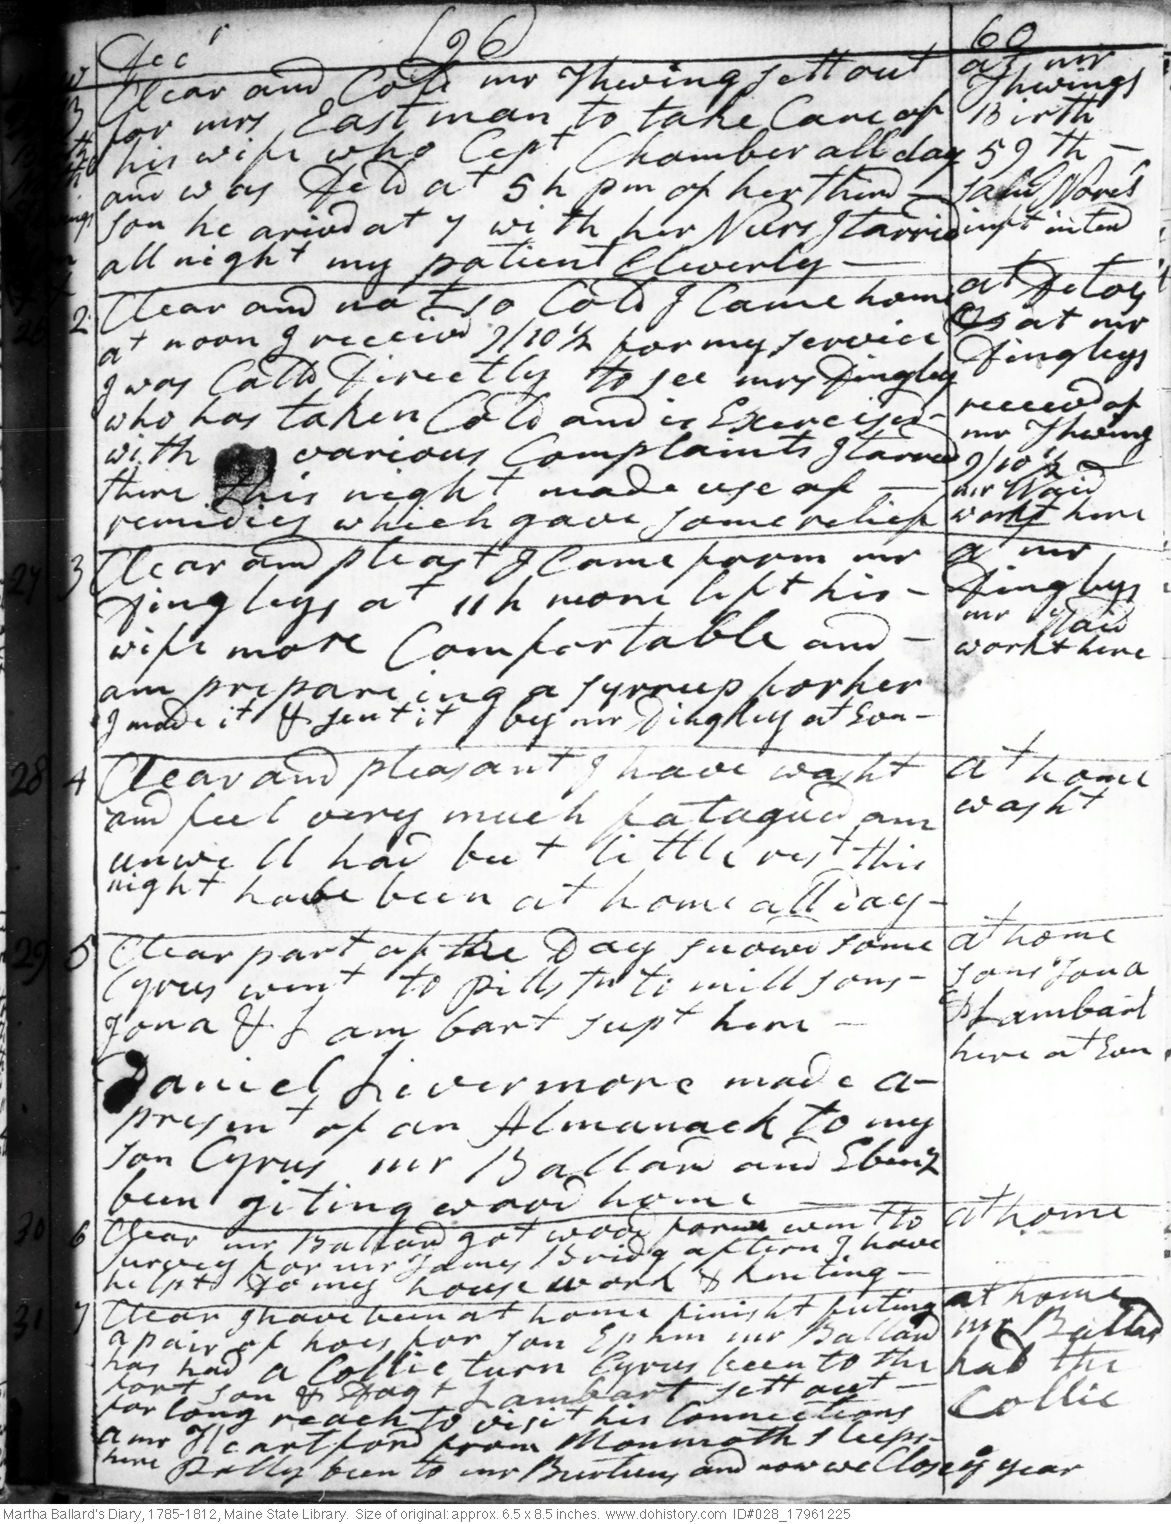 Dec r (26) 60
Clear and Cold mr Thwing sett out
for mrs Eastman to take Care of
his wife who Cept Chamber all day
and was Deld at 5 h pm of her third
son he arivd at 7 with her Nurs I tarried
all night my patient Cleverly
at mr
Thwings
Birth
59th
Sally Nores
26 2 Clear and not so Cold I Came home
at noon I receivd 9/10½ for my service
I was Calld Directly to see mrs Dingley
who has taken Cold and is Exercised
with various Complaints I tarried
there this night made use of
remidies which gave some relief
at Detoy
as at mr
Dingleys
receevd of
mr Thwing
9/10½
mr Waid
workt here
27 3 Clear and pleast I Came from mr
Dingleys at 11 h morn left his
wife more Comfortable and
am prepareing a syrrup for her
I made it & sent it by mr Dingley at Evn
at mr
Dingleys
mr Waid
workt here
28 4 Clear and pleasant I have washt
and feel very much fatagud am
unwell had but little rest this
night have been at home all day
at home
washt
29 5 Clear part of the Day snowd some
Cyrus went to Pitts Tn to mill sons
Jona & Lambart supt here
Daniel Livermore made a
present of an Almanack to my
son Cyrus mr Ballard and Ebenz
been giting wood home
at home
sons Jona
& Lambard
here at Evn
30 6 Clear mr Ballard got wood forn went to
survey for mr James Bridg aftern I have
helpt do my house work & knitting
at home
31 7 Clear I have been at home finisht futing
a pair of hoes for son Ephm mr Ballard
has had a Collic turn Cyrus been to the
fort son & Dagt Lambart sett out
for long reach to visit his Connections
a mr Heartford from Monmoth sleeps
here Polly been to mr Burtuns and now we Close ye year
at home
mr Ballad
had the
Collic
Martha Ballard's Diary, 1785-1812, Maine State Library. Size of original: approx. 6.5 x 8.5 inches. www.dohistory.com ID#028_17961225